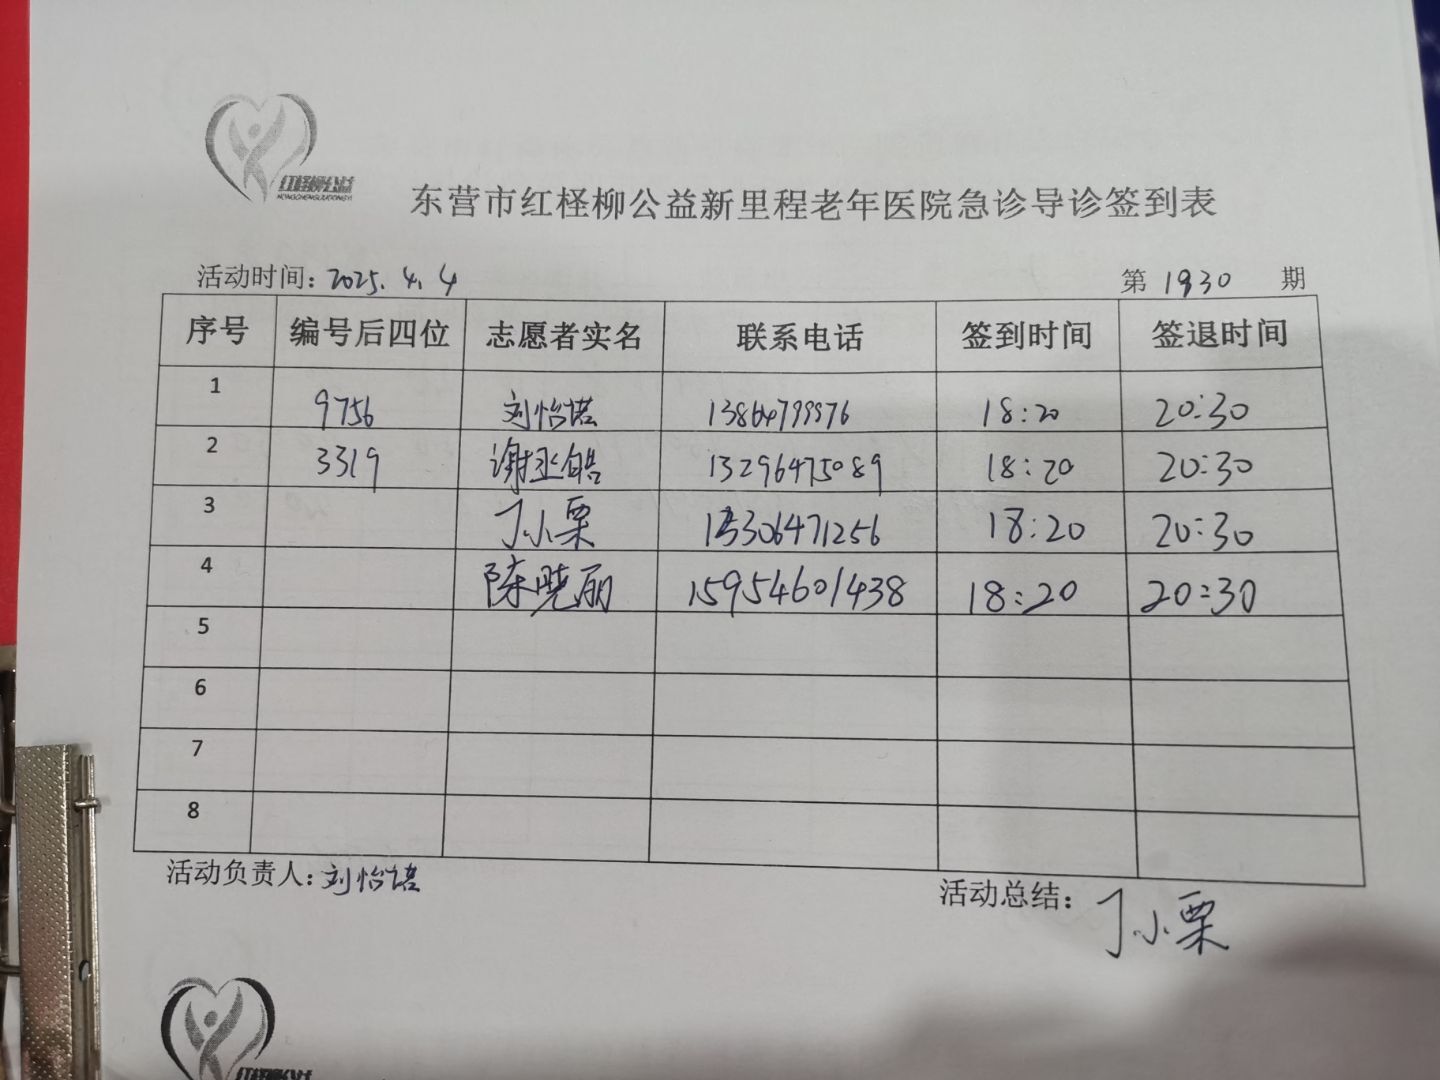 红柽柳公益
HONGCHENGLIUGONGYI
东营市红柽柳公益新里程老年医院急诊导诊签到表
活动时间：2025.4.4 第 1930 期
序号 编号后四位 志愿者实名 联系电话 签到时间 签退时间
1 9756 刘怡诺 18:20 20:30
2 3319 13296475089 18:20 20:30
3 丁小栗 18:20 20:30
4 陈晓丽 15954601438 18:20 20:30
5
6
7
8
活动负责人：刘怡诺 活动总结：丁小栗
红柽柳公益